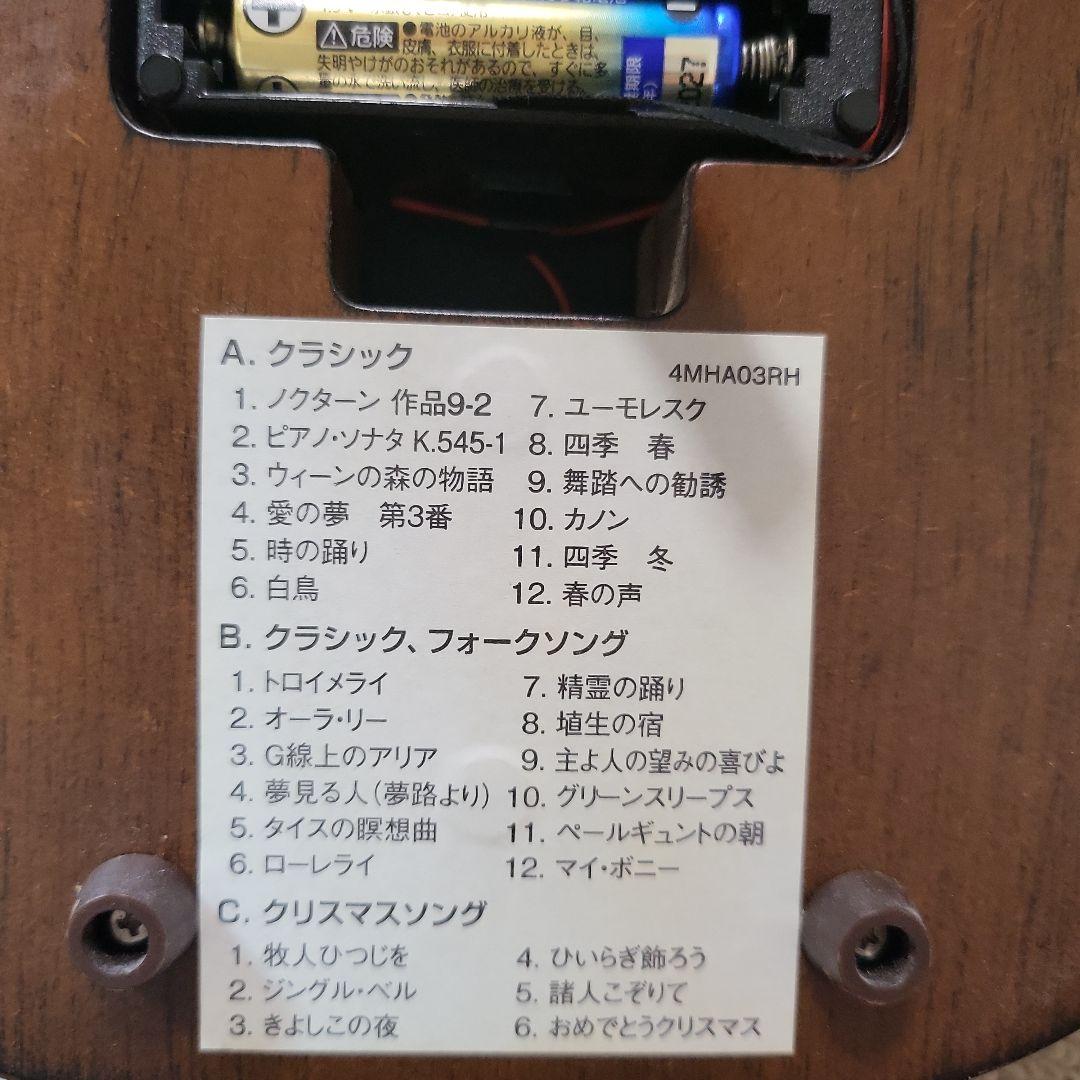 ⚠危険 ●電池のアルカリ液が、目、
皮膚、衣服に付着したときは、
失明やけがのおそれがあるので、すぐに多
027
A. クラシック
4MHA03RH
1. ノクターン 作品9-2
2. ピアノ・ソナタ K.545-1
3. ウィーンの森の物語
4. 愛の夢　第3番
5. 時の踊り
6. 白鳥
7. ユーモレスク
8. 四季　春
9. 舞踏への勧誘
10. カノン
11. 四季　冬
12. 春の声
B. クラシック、フォークソング
1. トロイメライ
2. オーラ・リー
3. G線上のアリア
4. 夢見る人(夢路より)
5. タイスの瞑想曲
6. ローレライ
7. 精霊の踊り
8. 埴生の宿
9. 主よ人の望みの喜びよ
10. グリーンスリーブス
11. ペールギュントの朝
12. マイ・ボニー
C. クリスマスソング
1. 牧人ひつじを
2. ジングル・ベル
3. きよしこの夜
4. ひいらぎ飾ろう
5. 諸人こぞりて
6. おめでとうクリスマス